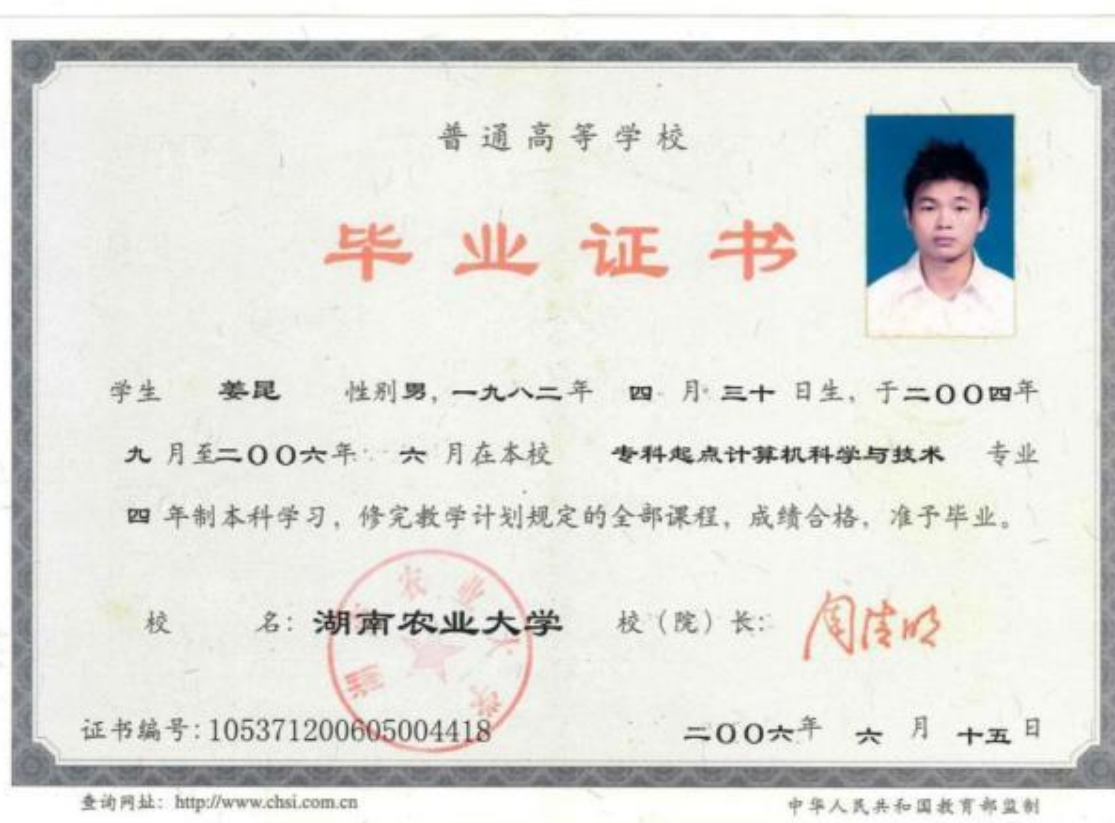 普通高等学校
毕业证书
学生 姜昆 性别男，一九八二年 四 月 三十 日生，于二〇〇四年
九 月至二〇〇六年 六 月在本校 专科起点计算机科学与技术 专业
四 年制本科学习，修完教学计划规定的全部课程，成绩合格，准予毕业。
校 名：湖南农业大学 校（院）长：周清明
湖南农业大学
证书编号：105371200605004418 二〇〇六年 六 月 十五 日
查询网址：http://www.chsi.com.cn 中华人民共和国教育部监制